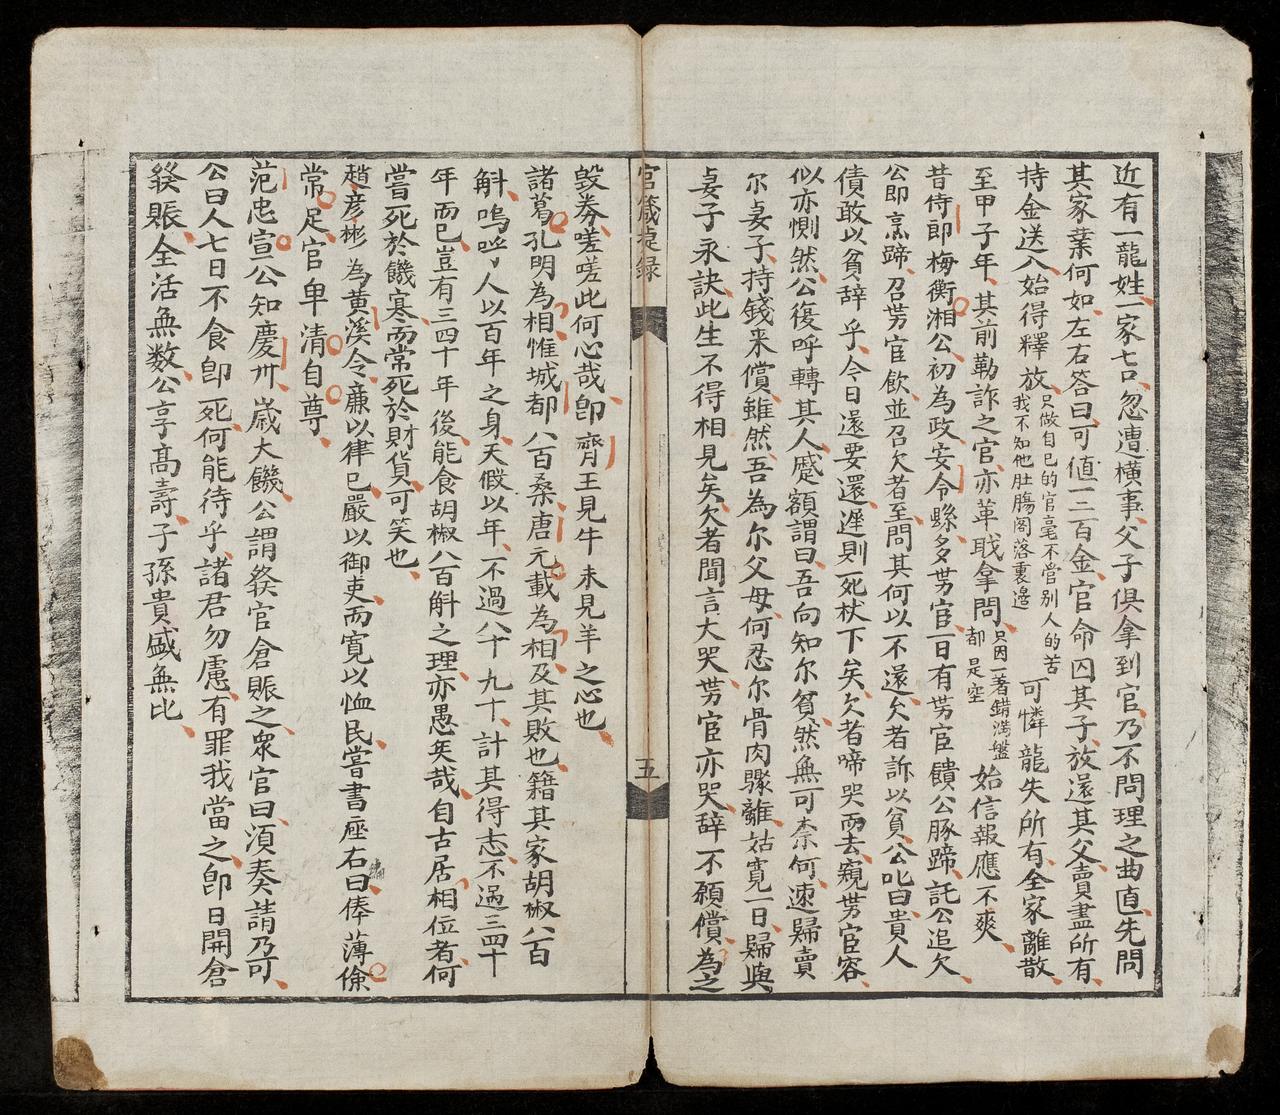 近有一龍姓一家七口忽遭橫事父子俱拿到官乃不問理之曲直先問
其家業何如左右答曰可値一二百金官命囚其子放還其父賣盡所有
持金送入始得釋放只做自己的官毫不管别人的苦我不知他肚腸閣落裏邊可憐龍失所有全家離散
至甲子年其前勒詐之官亦革職拿問只因一著錯滿盤都是空始信報應不爽
昔侍郎梅衡湘公初為政安令縣多勞官一日有勞宦饋公豚蹄託公追欠
公即烹蹄召勞官飲並召欠者至問其何以不還欠者訴以貧公叱曰貴人
債敢以貧辭乎今日還要還遲則死杖下矣欠者啼哭而去窺勞宦容
似亦惻然公復呼轉其人蹙額謂曰吾向知尔貧然無可柰何速歸賣
尔妻子持錢来償雖然吾為尔父母何忍尔骨肉驟離姑寛一日歸與
妻子永訣此生不得相見矣欠者聞言大哭勞宦亦哭辭不願償為之
官箴捷録
五
毀券嗟嗟此何心哉卽齊王見牛未見羊之心也
諸葛孔明為相惟城都八百桑唐元載為相及其敗也籍其家胡椒八百
斛嗚呼人以百年之身天假以年不過八十九十計其得志不過三四十
年而已豈有三四十年後能食胡椒八百斛之理亦愚矣哉自古居相位者何
嘗死於饑寒而常死於財貨可笑也
趙彦彬為黄溪令亷以律已嚴以御吏而寛以恤民嘗書座右曰俸薄儉
常足官卑清自尊
范忠宣公知慶州歲大饑公謂發官倉賑之衆官曰湏奏請乃可
公曰人七日不食卽死何能待乎諸君勿慮有罪我當之卽日開倉
發賑全活無数公享髙壽子孫貴盛無比